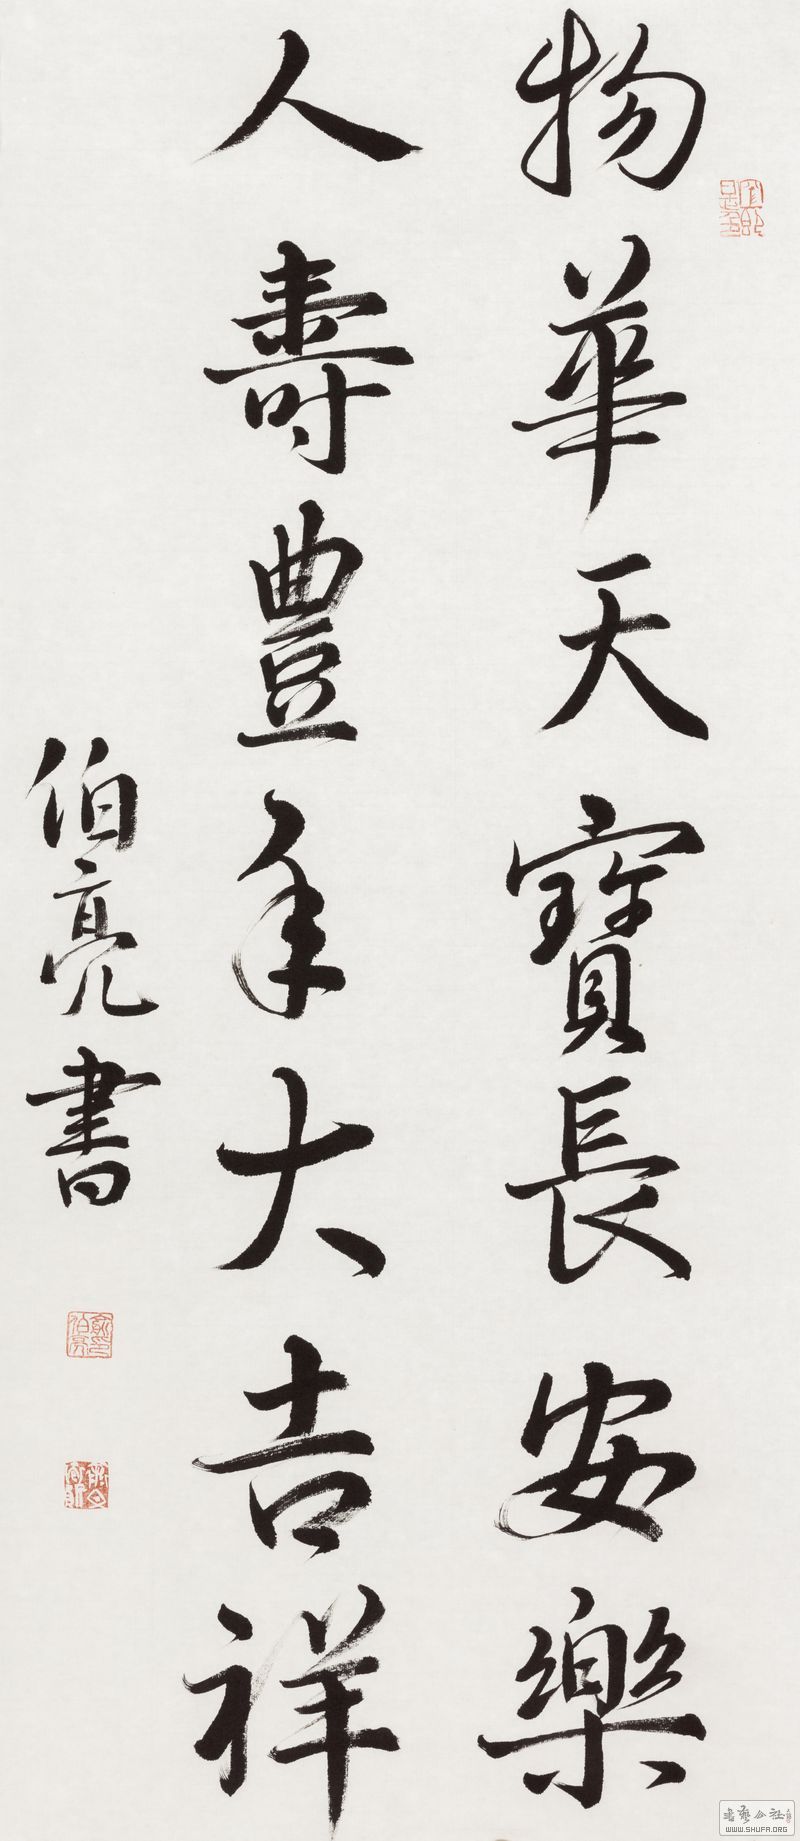 物華天寶長安樂
人壽豐年大吉祥
伯亮書
書藝公社
WWW.SHUFA.ORG